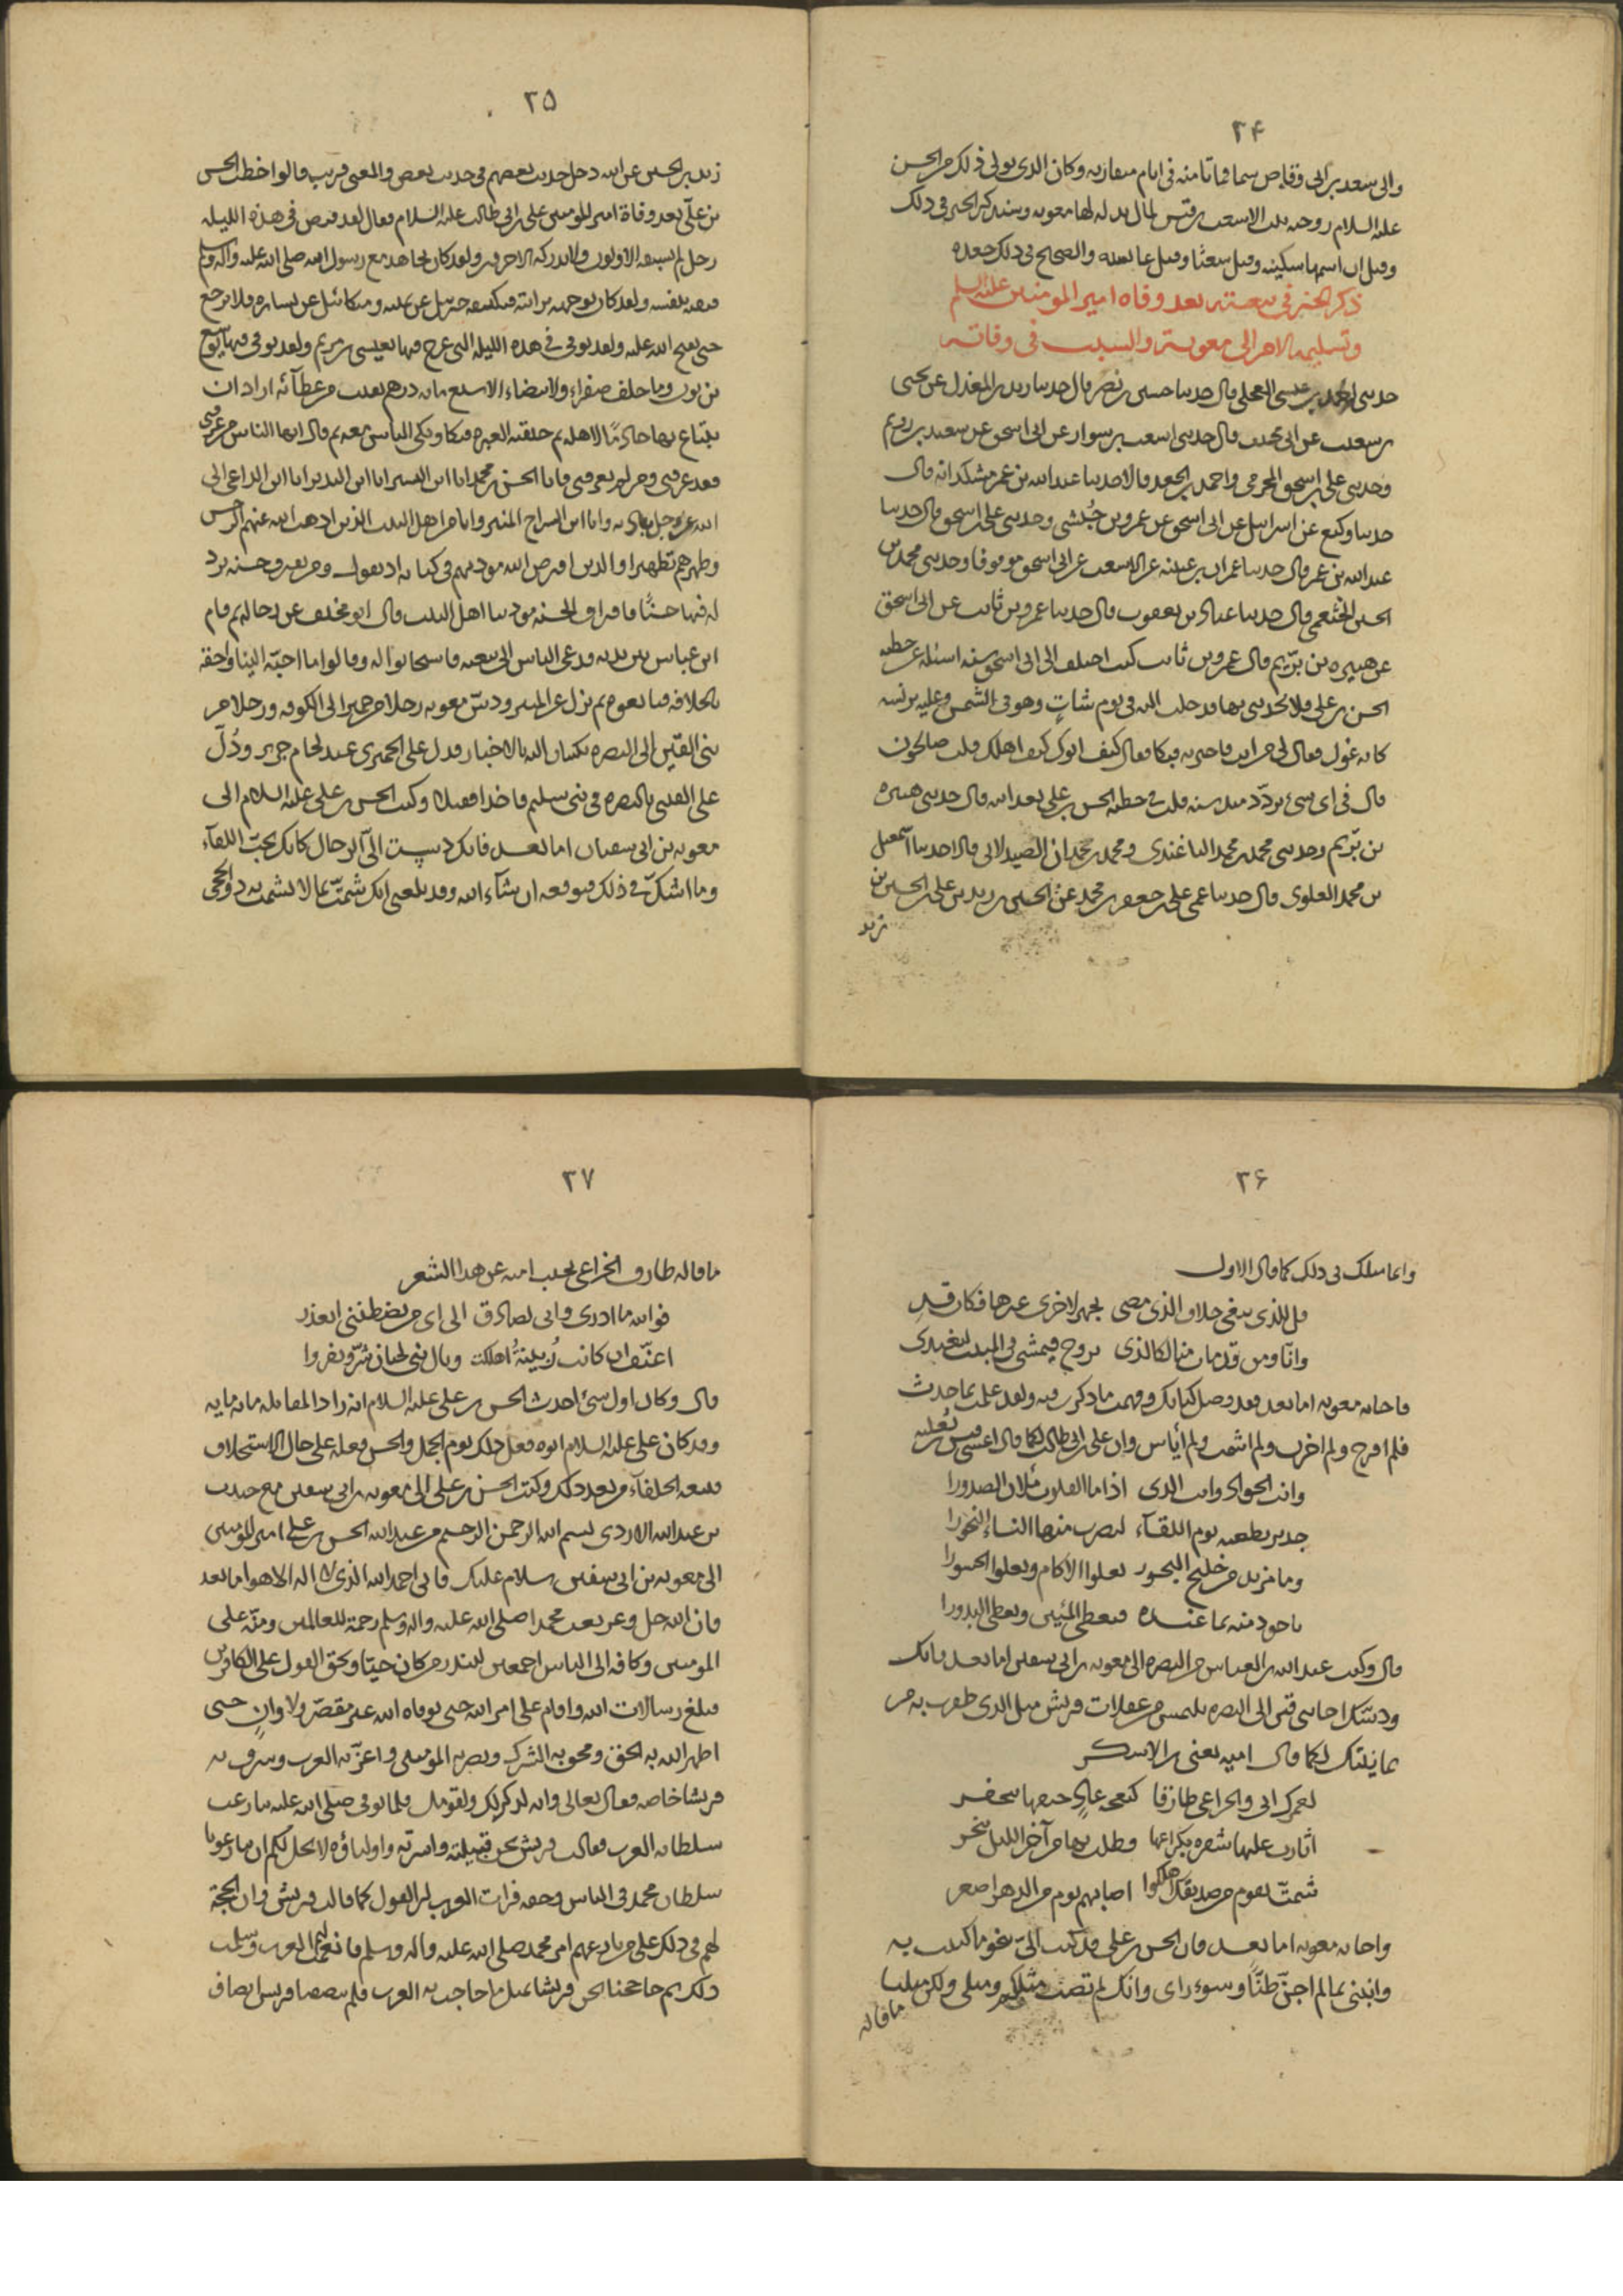 ٢۴
والى سعد بن ابى وقاص سما فماتا منه فى ايام متقاربه وكان الذى تولى ذلك من الحسن
عليه السلام زوجته بنت الاشعث بن قيس لمال بذله لها معوية وسنذكر الخبر فى ذلك
وقيل ان اسمها سكينه وقيل شعثا وقيل عايشه والصحيح فى ذلك جعده
ذكر الخبر فى بيعته بعد وفاه امير المومنين عليه السلم
وتسليمه الامر الى معويه والسبب فى وفاته
حدثنى احمد بن عيسى العجلى قال حدثنا حسين بن نصر قال حدثنا زيد بن المعذل عن يحيى
بن شعيب عن ابى مخنف قال حدثنى اشعث بن سوار عن ابى اسحق عن سعيد بن رويم
وحدثنى على بن اسحق المخرمى واحمد بن الجعد قالا حدثنا عبد الله بن عمر مشكدانه قال
حدثنا وكيع عن اسرائيل عن ابى اسحق عن عمرو بن حُبشى وحدثنى على بن اسحق قال حدثنا
عبد الله بن عمر قال حدثنا عمران بن عيينه عن الاشعث عن ابى اسحق موقوفا وحدثنى محمد بن
الحسين الخثعمى قال حدثنا عباد بن يعقوب قال حدثنا عمرو بن ثابت عن ابى اسحق
عن هبيره بن يريم قال قال عمرو بن ثابت كنت اختلف الى ابى اسحق سنه اسئله عن خطبه
الحسن بن على فلا يحدثنى بها فدخلت اليه فى يوم شاتٍ وهو فى الشمس وعليه برنسه
كانه غول فقال لى من انت فاخبرته فبكا وقال كيف ابوك كيف اهلك قلت صالحون
قال فى اى شئ تردّد منذ سنه قلت فى خطبه الحسن بن على بعد ابيه قال حدثنى هبيره
بن يريم وحدثنى محمد بن محمد الباغندى ومحمد بن حمدان الصيدلانى قالا حدثنا اسمعيل
بن محمد العلوى قال حدثنا عمى على بن جعفر بن محمد عن الحسين بن زيد بن على بن الحسين بن
زيد
٢۵
زيد بن الحسن عن ابيه دخل حديث بعضهم فى حديث بعض والمعنى قريب قالوا خطب الحسن
بن علىّ بعد وفاة امير المومنين على بن ابى طالب عليه السلام فقال لقد قبض فى هذه الليله
رجل لم يسبقه الاولون ولا يدركه الاخرون ولقد كان يجاهد مع رسول الله صلى الله عليه واله وسلم
فيقيه بنفسه ولقد كان يوجهه برايته فيكتنفه جبريل عن يمينه وميكائيل عن يساره فلا يرجع
حتى يفتح الله عليه ولقد توفى فى هذه الليله التى عرج فيها بعيسى بن مريم ولقد توفى فيها يوشع
بن نون وما خلف صفراء ولا بيضاء الا سبع مايه درهم بقيت من عطآئه اراد ان
يبتاع بها خادمًا لاهله ثم خنقته العبره فبكا وبكى الناس معه ثم قال ايها الناس من عرفنى
فقد عرفنى ومن لم يعرفنى فانا الحسن بن محمد انا ابن البشير انا ابن النذير انا ابن الداعى الى
الله عز وجل باذنه وانا ابن السراج المنير وانا من اهل البيت الذين اذهب الله عنهم الرجس
وطهرهم تطهيرا والذين افترض الله مودتهم فى كتابه اذ يقول ومن يقترف حسنه نزد
له فيها حسنًا فاقتراف الحسنه مودتنا اهل البيت قال ابو مخنف عن رجاله ثم قام
ابن عباس بين يديه فدعى الناس الى بيعته فاستجابوا له وقالوا ما احبّه الينا واحقه
بالخلافه فبايعوه ثم نزل عن المنبر ودسّ معويه رجلا من حمير الى الكوفه ورجلا من
بنى القين الى البصره يكتبان اليه بالاخبار فدل على الحميرى عند لحام جرير ودُلّ
على القينى بالبصره فى بنى سليم فاخذا فقتلا وكتب الحسن بن على عليه السلام الى
معويه بن ابى سفيان اما بعد فانك دسست الىّ الرجال كانك تحبّ اللقآء
وما اشكّ فى ذلك فتوقعه ان شآء الله وقد بلغنى انك شمتّ بما لا يشمت به ذو الحجى
٢۶
وانما مثلك فى ذلك كما قال الاول
قل للذى يبغى خلاف الذى مضى تجهز لاخرى غيرها فكان قدِ
وانّا ومن قد مات منا لكالذى يروح فيمشى فى المبيت ليغتدى
فاجابه معويه اما بعد فقد وصل كتابك وفهمت ما ذكرت فيه ولقد علمت بما حدث
فلم افرح ولم احزن ولم اشمت ولم آياس وان على بن ابى طالب لكما قال اعشى قيس بن ثعلبه
وانت الجواد وانت الذى اذا ما القلوب ملان الصدورا
جدير بطعنه يوم اللقآء يضرب منها النساء النحورا
وما مزيد من خليج البحور يعلوا الاكام ويعلوا الجسورا
باجود منه بما عنده فيعطى المئين ويعطى البدورا
قال وكتب عبد الله بن العباس من البصره الى معويه بن ابى سفين اما بعد فانك
ودسّك اخا بنى قين الى البصره تلتمس من غفلات قريش مثل الذى ظفرت به من
يمانيتك لكما قال اميه يعنى بن الاسكر
لعمرك انى والخزاعى طارقا كنعجه عادٍ حتفها تتحفر
اثارت عليها شفره بكراعها فظلت بها من آخر الليل تنحر
شمتّ بقوم من صديقك هلكوا اصابهم يوم من الدهر اصعر
فاجابه معويه اما بعد فان الحسن بن على قد كتب الىّ نحو ما كتبت به
وانبنى بما لم اجنّ ظنًّا وسوء راى وانك لم تصب مثلكم ومثلى ولكن مثلنا
ما قاله
٢٧
ما قاله طارق الخزاعى يجيب اميه عن هذا الشعر
فوالله ما ادرى وانى لصادق الى اى من يضطننى اتعذر
اعنّف ان كانت زُبينةُ اهلكت ونال بنى لحيان شرّ ونفروا
قال وكان اول شئ احدث الحسن بن على عليه السلام انه زاد المقاتله مايه مايه
وقد كان على عليه السلام ابوه فعل ذلك يوم الجمل والحسن فعله على حال الاستخلاف
فتبعه الخلفآء من بعد ذلك وكتب الحسن بن على الى معويه بن ابى سفين مع جندب
بن عبد الله الازدى بسم الله الرحمن الرحيم من عبد الله الحسن بن على امير المومنين
الى معويه بن ابى سفين سلام عليك فانى احمد الله الذى لا اله الا هو اما بعد
فان الله جل وعز بعث محمدا صلى الله عليه واله وسلم رحمة للعالمين ومنّه على
المومنين وكافه الى الناس اجمعين لينذر من كان حيّا ويحق القول على الكافرين
فبلغ رسالات الله واقام على امر الله حتى توفاه الله غير مقصّر ولا وانٍ حتى
اظهر الله به الحق ومحق به الشرك ونصر به المومنين واعزّ به العرب وشرف به
قريشا خاصه فقال تعالى وانه لذكر لك ولقومك فلما توفى صلى الله عليه تنازعت
سلطانه العرب فقالت قريش نحن قبيلته واسرته واولياؤه لا يحل لكم ان تنازعونا
سلطان محمد فى الناس وحقه فرات العرب ان القول كما قالت قريش وان الحجة
لهم فى ذلك على من نازعهم امر محمد صلى الله عليه واله وسلم فانعمت لهم العرب وسلمت
ذلك ثم حاججنا نحن قريشا بمثل ما حاجت به العرب فلم تنصفنا قريش انصاف